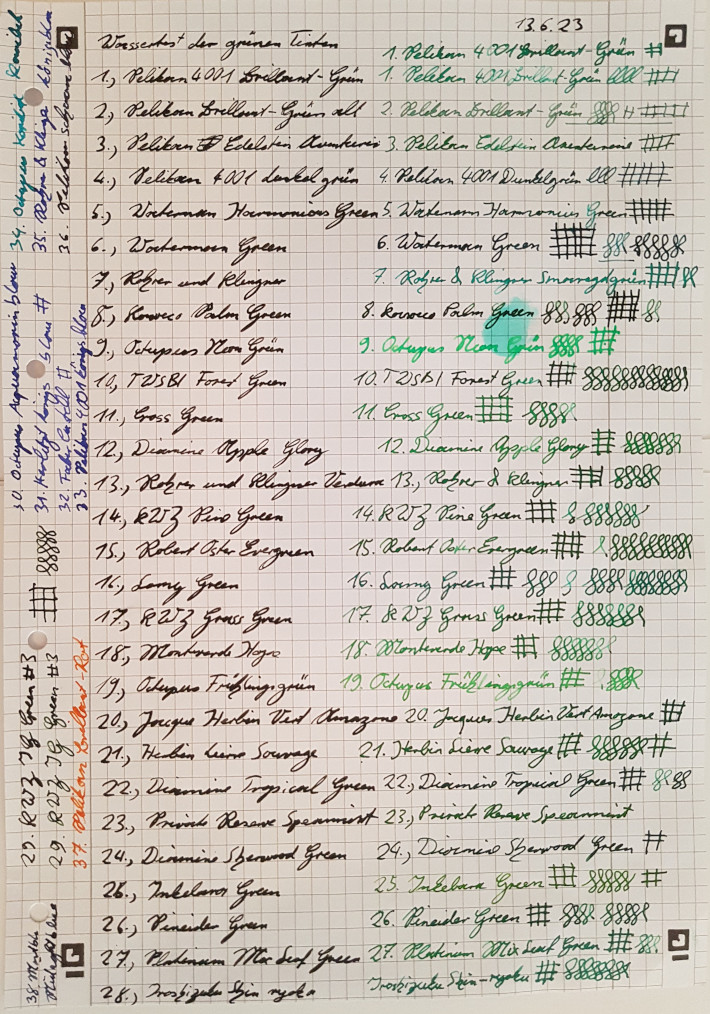 13.6.23
Wassertest der grünen Tinten
1. Pelikan 4001 Brillant-Grün
1., Pelikan 4001 Brillant-Grün 1. Pelikan 4001 Brillant-Grün
2., Pelikan Brillant-Grün alt 2. Pelikan Brillant-Grün
3., Pelikan Edelstein Aventurin 3. Pelikan Edelstein Aventurine
4., Pelikan 4001 dunkelgrün 4. Pelikan 4001 Dunkelgrün
5., Waterman Harmonious Green 5. Waterman Harmonius Green
6., Waterman Green 6. Waterman Green
7., Rohrer und Klingner 7. Rohrer & Klingner Smaragdgrün
8., Kaweco Palm Green 8. Kaweco Palm Green
9., Octupus Neon Grün 9. Octupus Neon Grün
10, TWSBI Forest Green 10. TWSBI Forest Green
11., Cross Green 11. Cross Green
12, Diamine Apple Glory 12. Diamine Apple Glory
13., Rohrer und Klingner Verdura 13., Rohrer & Klingner
14., KWZ Pine Green 14. KWZ Pine Green
15., Robert Oster Evergreen 15. Robert Oster Evergreen
16, Lamy Green 16. Lamy Green
17., KWZ Grass Green 17. KWZ Grass Green
18., Monteverde Hope 18. Monteverde Hope
19., Octupus Frühlingsgrün 19. Octupus Frühlingsgrün
20., Jacque Herbin Vert Amazone 20. Jacques Herbin Vert Amazone
21., Herbin Lierre Sauvage 21. Herbin Lierre Sauvage
22., Diamine Tropical Green 22., Diamine Tropical Green
23., Private Reserve Spearmint 23., Private Reserve Spearmint
24., Diamine Sherwood Green 24., Diamine Sherwood Green
25., Inkebara Green 25. Inkebara Green
26., Pineider Green 26. Pineider Green
27., Platinum Mix Leaf Green 27. Platinum Mix Leaf Green
28., Iroshizuku Shin ryoku Iroshizuku Shin-ryoku
29. KWZ IG Green #3
29. KWZ IG Green #3
30. Octupus Aquamarin blau
31. Herlitz Königsblau
32. Faber Castell
33. Pelikan 4001 Königsblau
34. Octopus
35. Rohrer & Klinger Königsblau
36. Pelikan schwarz
37. Pelikan Brillant-Rot
38.